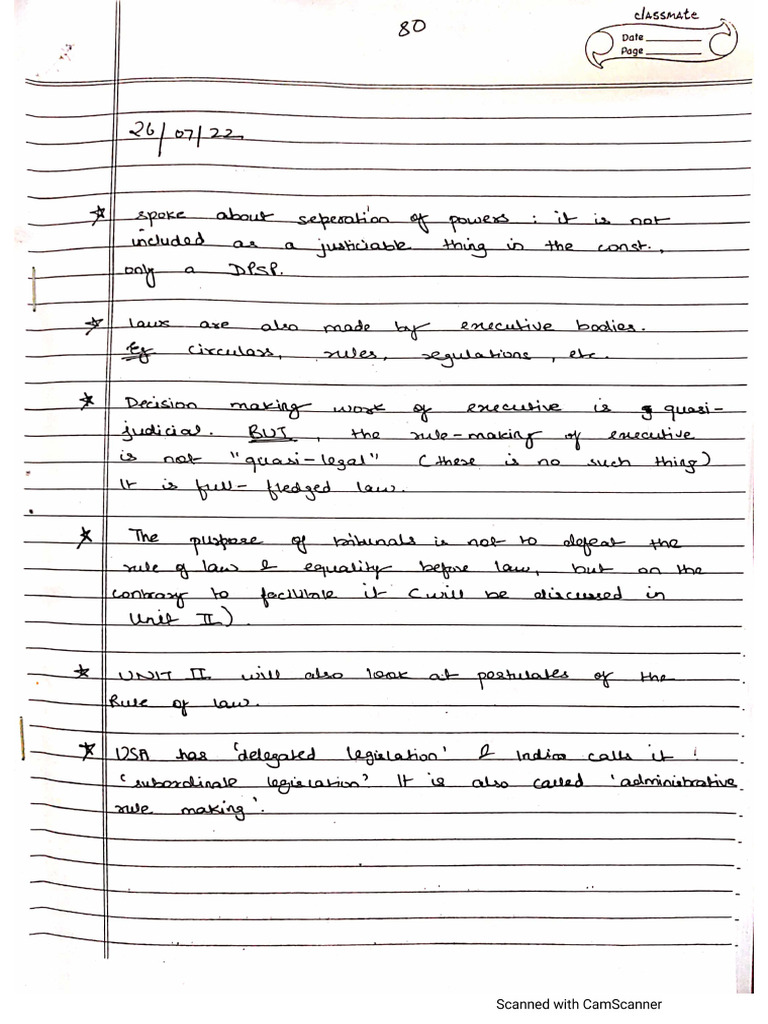 80
classmate
Date
Page
26/07/22
* spoke about seperation of powers : it is not
included as a justiciable thing in the const.,
only a DPSP.
* laws are also made by executive bodies.
Eg circulars, rules, regulations, etc.
* Decision making work of executive is quasi-
judicial. BUT, the rule-making of executive
is not "quasi-legal" (there is no such thing)
It is full-fledged law.
* The purpose of tribunals is not to defeat the
rule of law & equality before law, but on the
contrary to facilitate it (will be discussed in
Unit II).
* UNIT II will also look at postulates of the
Rule of law.
* USA has 'delegated legislation' & India calls it
'subordinate legislation'. It is also called 'administrative
rule making'.
Scanned with CamScanner